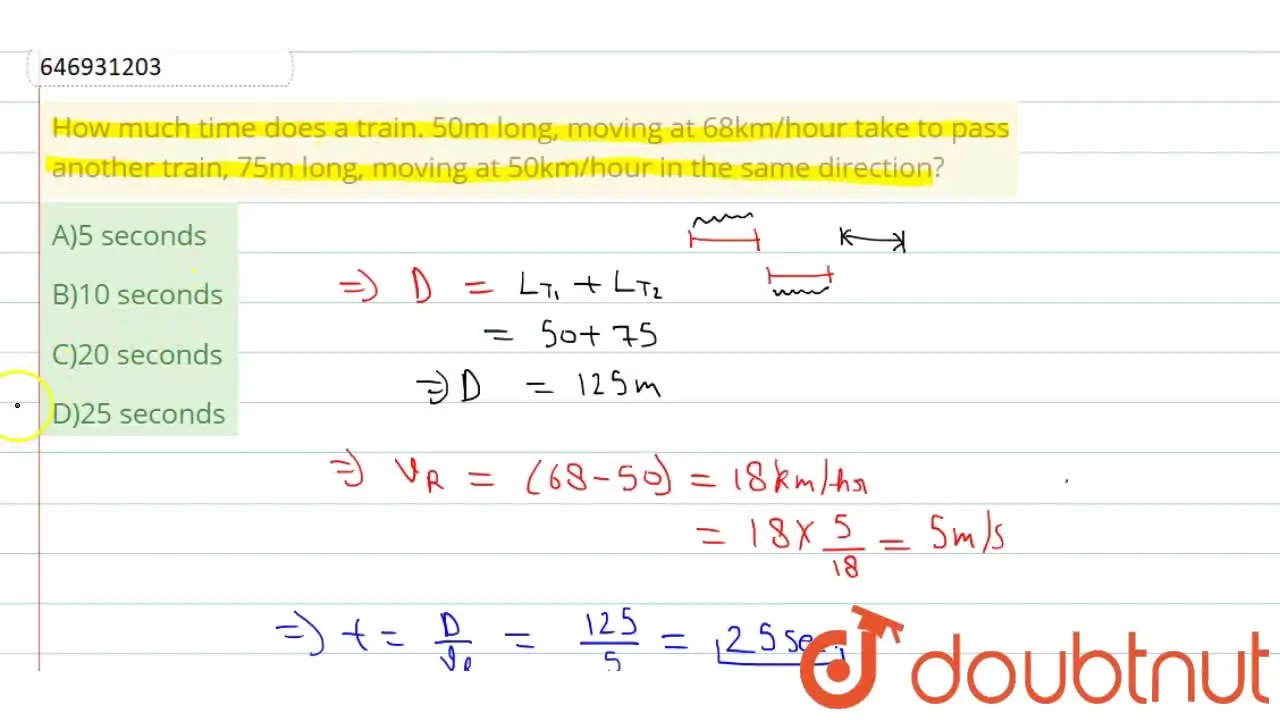 646931203
How much time does a train. 50m long, moving at 68km/hour take to pass
another train, 75m long, moving at 50km/hour in the same direction?
A)5 seconds
B)10 seconds
C)20 seconds
D)25 seconds
=) D = LT₁ + LT₂
= 50+75
=) D = 125m
=) VR = (68-50) = 18km/hr
= 18 × 5/18 = 5m/s
=) t = D/VR = 125/5 = 25 sec
doubtnut